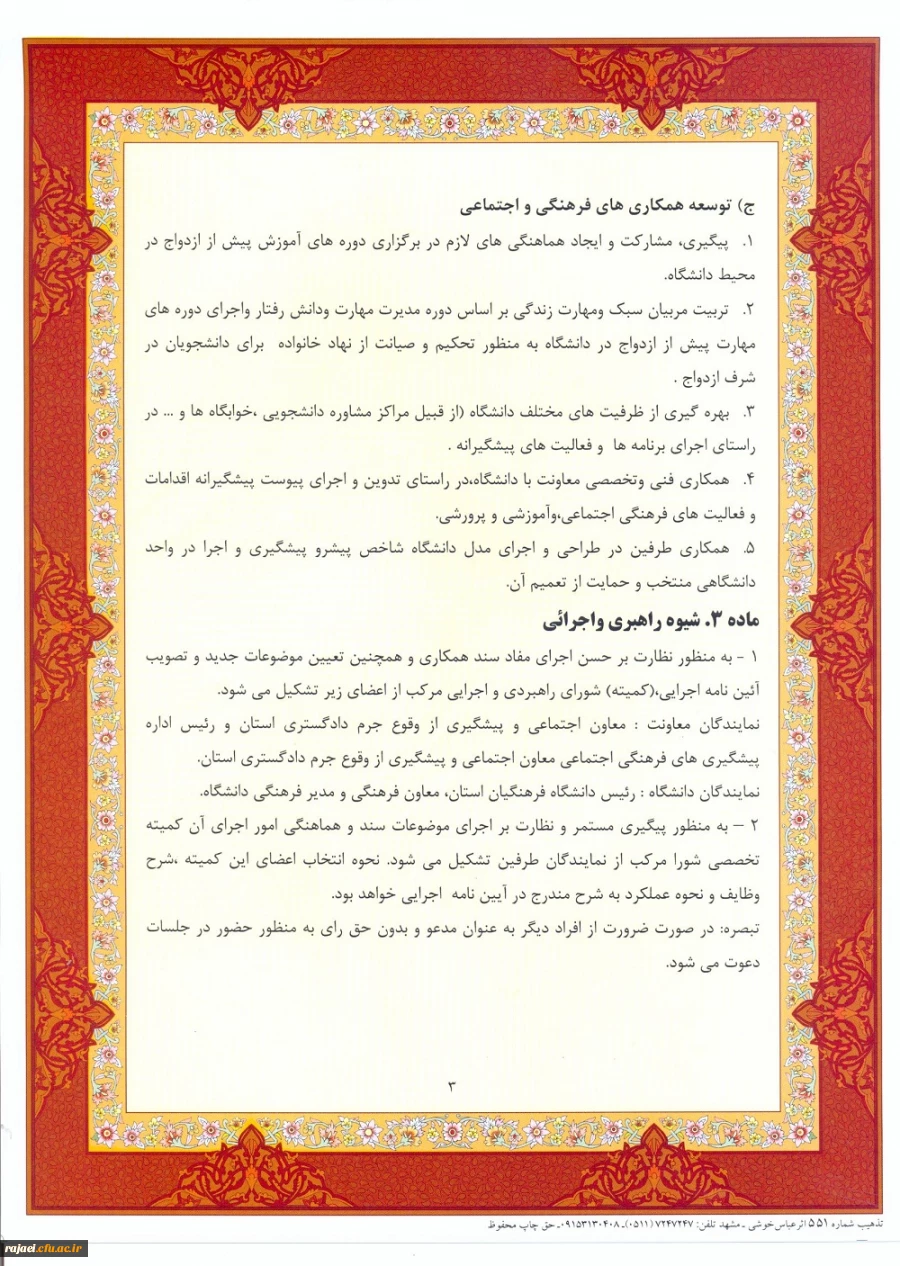 ج) توسعه همکاری های فرهنگی و اجتماعی
۱. پیگیری، مشارکت و ایجاد هماهنگی های لازم در برگزاری دوره های آموزش پیش از ازدواج در
محیط دانشگاه.
۲. تربیت مربیان سبک ومهارت زندگی بر اساس دوره مدیرت مهارت ودانش رفتار واجرای دوره های
مهارت پیش از ازدواج در دانشگاه به منظور تحکیم و صیانت از نهاد خانواده برای دانشجویان در
شرف ازدواج .
۳. بهره گیری از ظرفیت های مختلف دانشگاه (از قبیل مراکز مشاوره دانشجویی ،خوابگاه ها و ... در
راستای اجرای برنامه ها و فعالیت های پیشگیرانه .
۴. همکاری فنی وتخصصی معاونت با دانشگاه،در راستای تدوین و اجرای پیوست پیشگیرانه اقدامات
و فعالیت های فرهنگی اجتماعی،وآموزشی و پرورشی.
۵. همکاری طرفین در طراحی و اجرای مدل دانشگاه شاخص پیشرو پیشگیری و اجرا در واحد
دانشگاهی منتخب و حمایت از تعمیم آن.
ماده ۳. شیوه راهبری واجرائی
۱ - به منظور نظارت بر حسن اجرای مفاد سند همکاری و همچنین تعیین موضوعات جدید و تصویب
آئین نامه اجرایی،(کمیته) شورای راهبردی و اجرایی مرکب از اعضای زیر تشکیل می شود.
نمایندگان معاونت : معاون اجتماعی و پیشگیری از وقوع جرم دادگستری استان و رئیس اداره
پیشگیری های فرهنگی اجتماعی معاون اجتماعی و پیشگیری از وقوع جرم دادگستری استان.
نمایندگان دانشگاه : رئیس دانشگاه فرهنگیان استان، معاون فرهنگی و مدیر فرهنگی دانشگاه.
۲ – به منظور پیگیری مستمر و نظارت بر اجرای موضوعات سند و هماهنگی امور اجرای آن کمیته
تخصصی شورا مرکب از نمایندگان طرفین تشکیل می شود. نحوه انتخاب اعضای این کمیته ،شرح
وظایف و نحوه عملکرد به شرح مندرج در آیین نامه اجرایی خواهد بود.
تبصره: در صورت ضرورت از افراد دیگر به عنوان مدعو و بدون حق رای به منظور حضور در جلسات
دعوت می شود.
۳
تذهیب شماره ۵۵۱ اثرعباس‌خوشی ـ مشهد تلفن: ۷۲۴۷۲۴۷ (۰۵۱۱)ـ ۰۹۱۵۳۱۳۰۴۰۸ـ حق چاپ محفوظ
rajaei.cfu.ac.ir